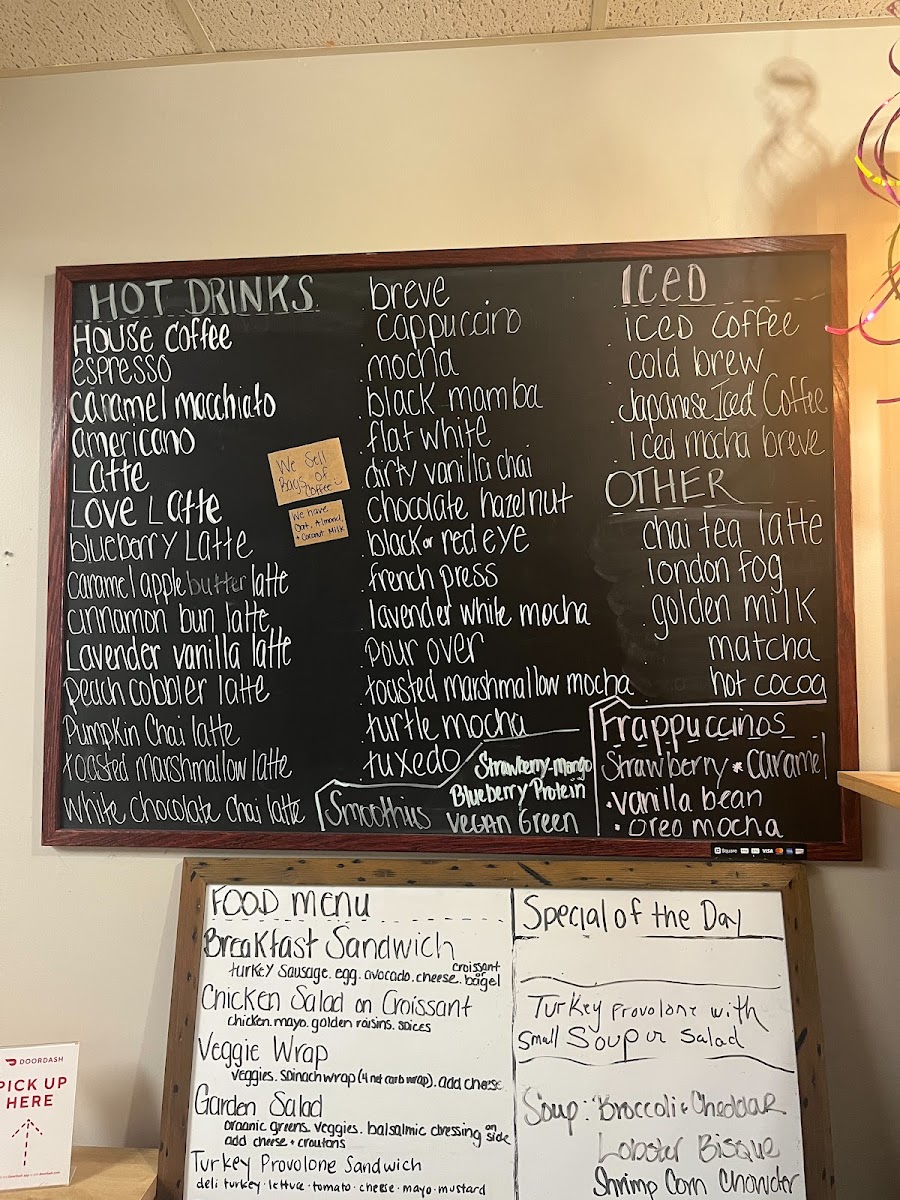 HOT DRINKS
House Coffee
espresso
caramel macchiato
americano
Latte
Love Latte
blueberry Latte
caramel apple butter latte
cinnamon bun latte
Lavender vanilla latte
peach cobbler latte
Pumpkin Chai latte
toasted marshmallow latte
white chocolate chai latte
We Sell
Bags of
Coffee
We have
Oat, Almond,
+ Coconut Milk
breve
cappuccino
mocha
black mamba
flat white
dirty vanilla chai
chocolate hazelnut
black or red eye
french press
lavender white mocha
pour over
toasted marshmallow mocha
turtle mocha
tuxedo
Smoothies
Strawberry-Mango
Blueberry Protein
VEGAN Green
ICED
iced coffee
cold brew
Japanese Iced Coffee
Iced mocha breve
OTHER
chai tea latte
london fog
golden milk
matcha
hot cocoa
Frappuccinos
Strawberry * Caramel
• vanilla bean
• oreo mocha
Square
VISA
FOOD menu
Breakfast Sandwich
turkey sausage. egg. avocado. cheese. croissant or bagel
Chicken Salad on Croissant
chicken. mayo. golden raisins. spices
Veggie Wrap
veggies. spinach wrap (4 net carb wrap). add cheese
Garden Salad
organic greens. veggies. balsalmic dressing on side
add cheese + croutons
Turkey Provolone Sandwich
deli turkey · lettuce · tomato · cheese · mayo · mustard
Special of the Day
Turkey Provolone with
small Soup or Salad
Soup: Broccoli & Cheddar
Lobster Bisque
Shrimp Corn Chowder
DOORDASH
PICK UP
HERE